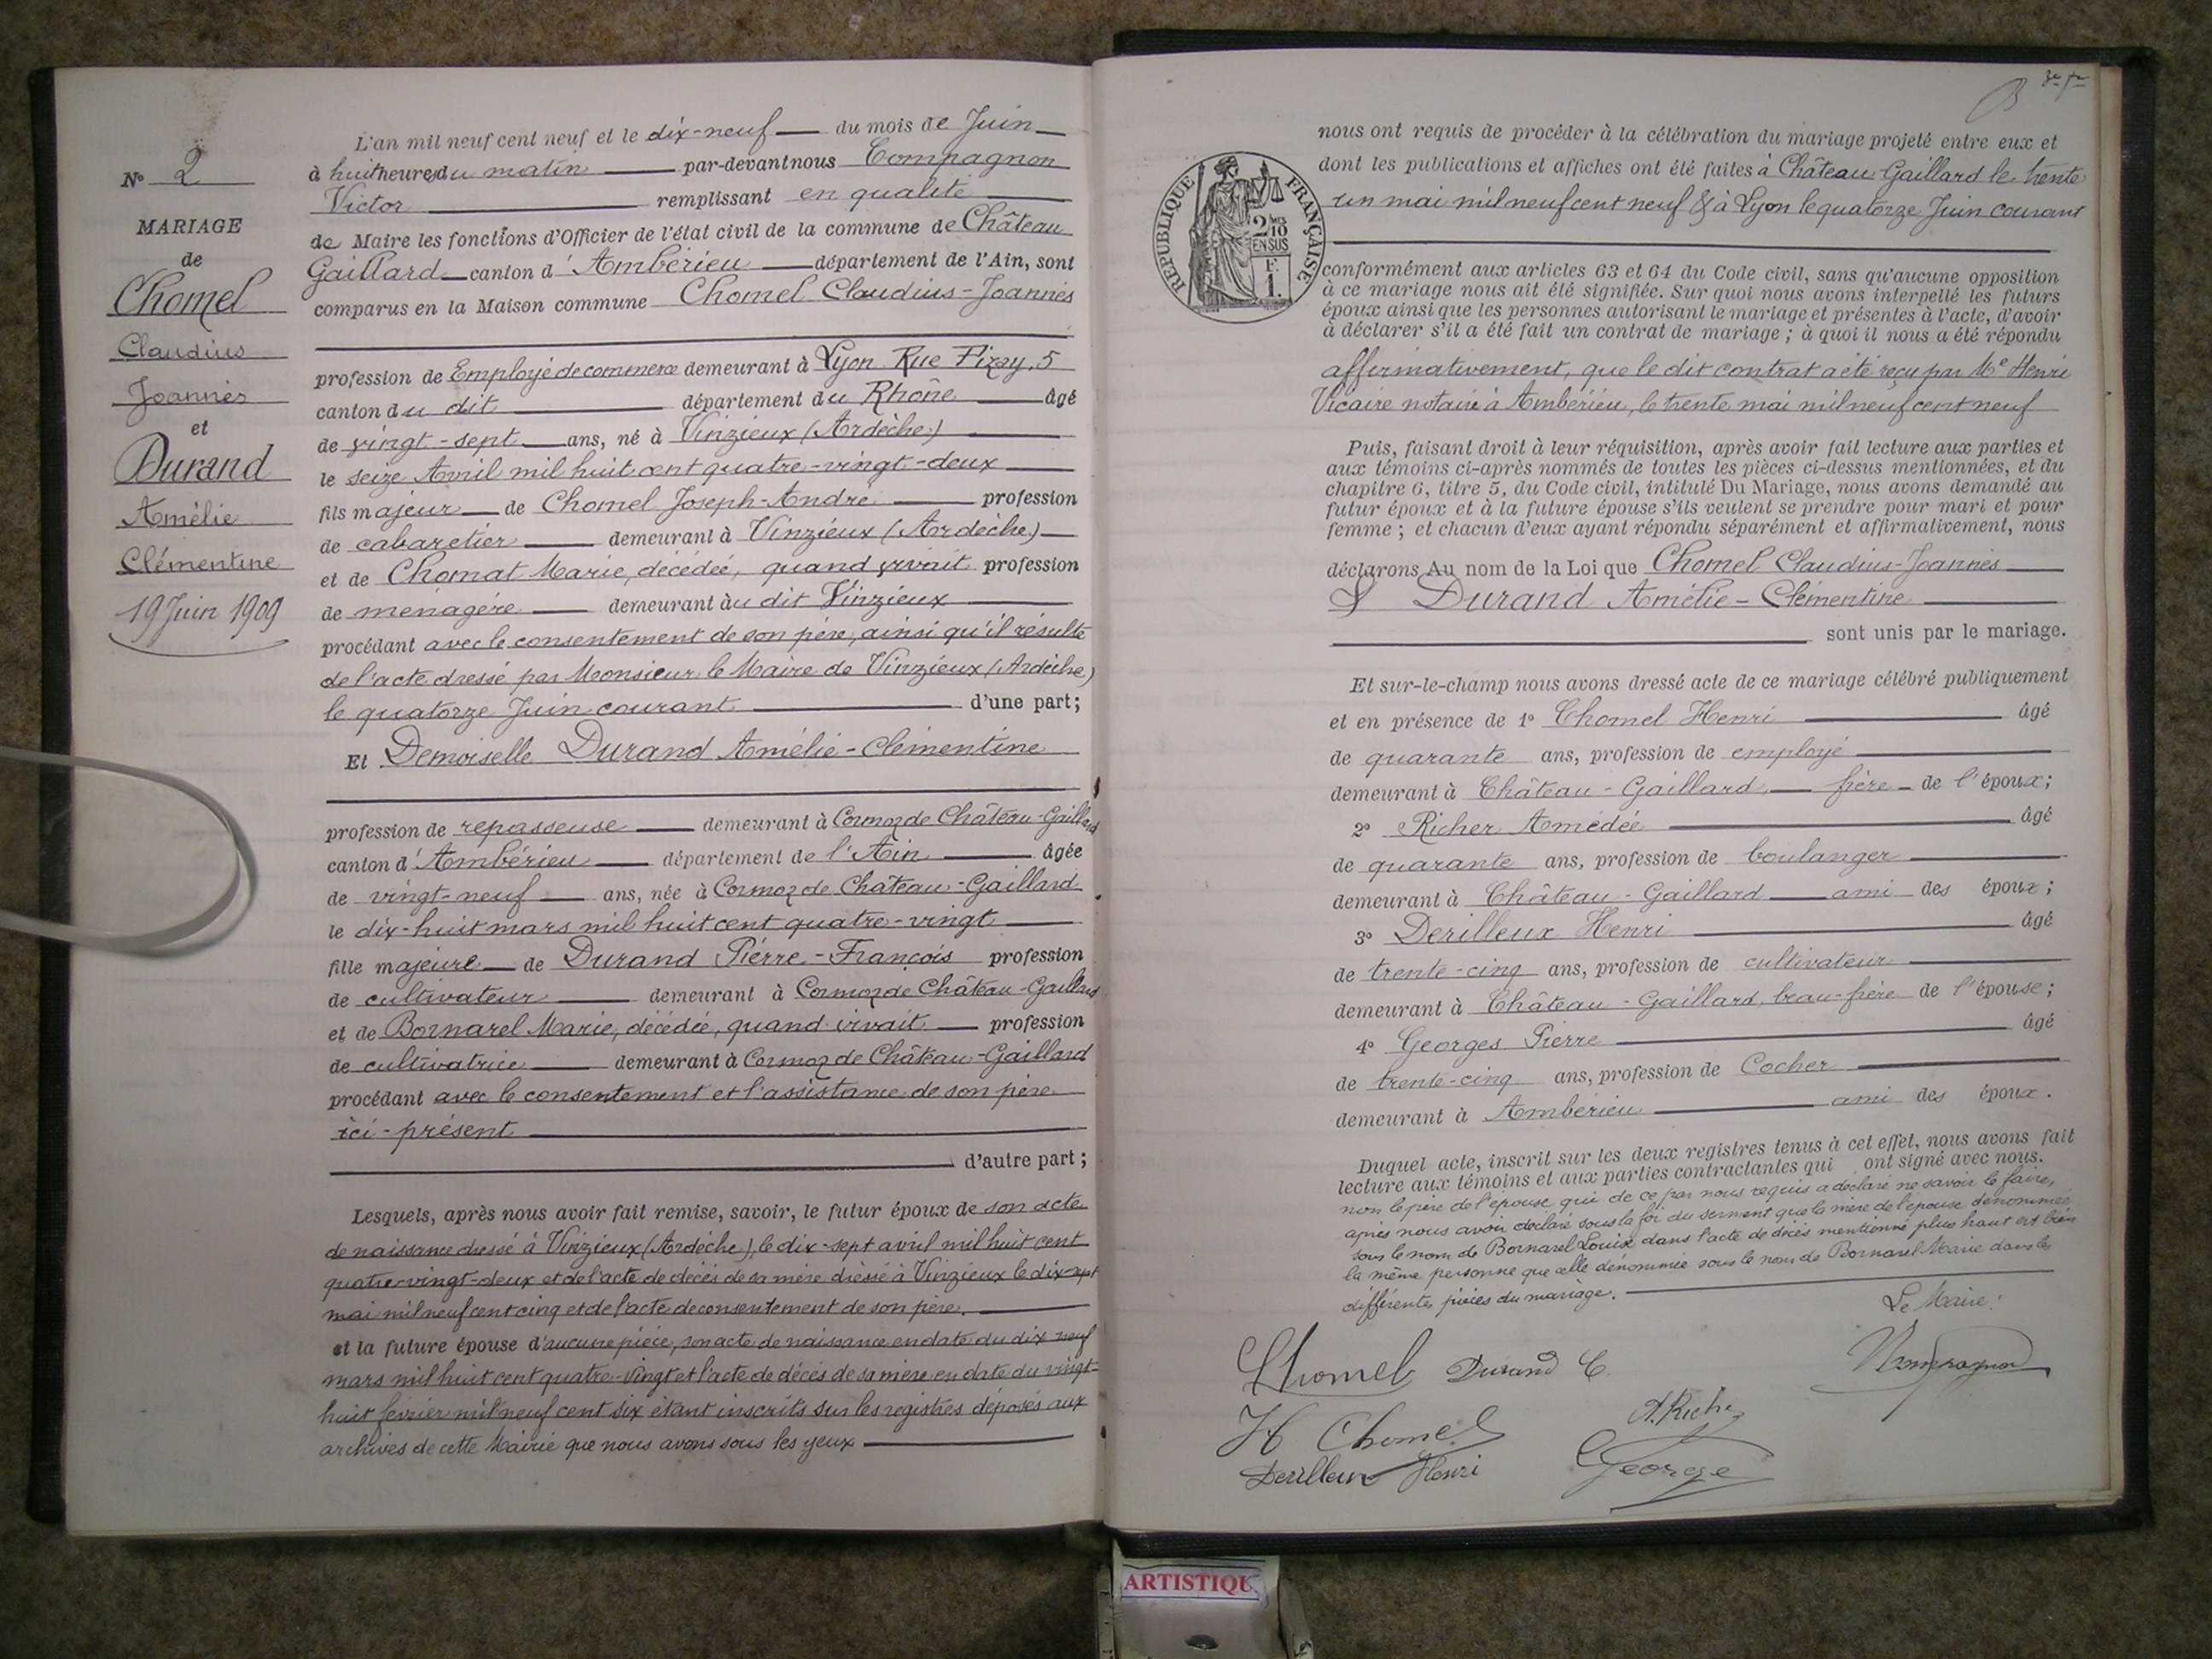 N° 2
MARIAGE
de
Chomel
Claudius
Joannès
et
Durand
Amélie
Clémentine
19 Juin 1909
L'an mil neuf cent neuf et le dix-neuf du mois de Juin
à huit heures du matin par-devant nous Compagnon
Victor remplissant en qualité
de Maire les fonctions d'Officier de l'état civil de la commune de Château
Gaillard canton d'Ambérieu département de l'Ain, sont
comparus en la Maison commune Chomel Claudius-Joannès
profession de Employé de commerce demeurant à Lyon Rue Pizay, 5
canton du dit département du Rhône âgé
de vingt-sept ans, né à Vinzieux (Ardèche)
le seize Avril mil huit cent quatre-vingt-deux
fils majeur de Chomel Joseph-André profession
de cabaretier demeurant à Vinzieux (Ardèche)
et de Chomat Marie, décédée, quand vivait profession
de ménagère demeurant au dit Vinzieux
procédant avec le consentement de son père, ainsi qu'il résulte
de l'acte dressé par Monsieur le Maire de Vinzieux (Ardèche)
le quatorze Juin courant d'une part;
Et Demoiselle Durand Amélie-Clémentine
profession de repasseuse demeurant à Cormoz de Château-Gaillard
canton d'Ambérieu département de l'Ain âgée
de vingt-neuf ans, née à Cormoz de Château-Gaillard
le dix-huit mars mil huit cent quatre-vingt
fille majeure de Durand Pierre-François profession
de cultivateur demeurant à Cormoz de Château-Gaillard
et de Bornarel Marie, décédée, quand vivait profession
de cultivatrice demeurant à Cormoz de Château-Gaillard
procédant avec le consentement et l'assistance de son père
ici-présent
d'autre part;
Lesquels, après nous avoir fait remise, savoir, le futur époux de son acte
de naissance dressé à Vinzieux (Ardèche), le dix-sept avril mil huit cent
quatre-vingt-deux et de l'acte de décès de sa mère dressé à Vinzieux le dix-sept
mai mil neuf cent cinq et de l'acte de consentement de son père.
et la future épouse d'aucune pièce, son acte de naissance en date du dix neuf
mars mil huit cent quatre-vingt et l'acte de décès de sa mère en date du vingt-
huit février mil neuf cent six étant inscrits sur les registres déposés aux
archives de cette Mairie que nous avons sous les yeux
RÉPUBLIQUE FRANÇAISE
2/10
EN SUS
F.
1.
nous ont requis de procéder à la célébration du mariage projeté entre eux et
dont les publications et affiches ont été faites à Château Gaillard le trente
un mai mil neuf cent neuf & à Lyon le quatorze Juin courant
conformément aux articles 63 et 64 du Code civil, sans qu'aucune opposition
à ce mariage nous ait été signifiée. Sur quoi nous avons interpellé les futurs
époux ainsi que les personnes autorisant le mariage et présentes à l'acte, d'avoir
à déclarer s'il a été fait un contrat de mariage ; à quoi il nous a été répondu
affirmativement, que le dit contrat a été reçu par Me Henri
Vicaire notaire à Ambérieu, le trente mai mil neuf cent neuf
Puis, faisant droit à leur réquisition, après avoir fait lecture aux parties et
aux témoins ci-après nommés de toutes les pièces ci-dessus mentionnées, et du
chapitre 6, titre 5, du Code civil, intitulé Du Mariage, nous avons demandé au
futur époux et à la future épouse s'ils veulent se prendre pour mari et pour
femme ; et chacun d'eux ayant répondu séparément et affirmativement, nous
déclarons Au nom de la Loi que Chomel Claudius-Joannès
& Durand Amélie-Clémentine
sont unis par le mariage.
Et sur-le-champ nous avons dressé acte de ce mariage célébré publiquement
et en présence de 1° Chomel Henri âgé
de quarante ans, profession de employé
demeurant à Château-Gaillard, frère de l'époux;
2° Richer Amédée âgé
de quarante ans, profession de boulanger
demeurant à Château-Gaillard ami des époux;
3° Derilleux Henri âgé
de trente-cinq ans, profession de cultivateur
demeurant à Château-Gaillard, beau-frère de l'épouse;
4° Georges Pierre âgé
de trente-cinq ans, profession de Cocher
demeurant à Ambérieu ami des époux.
Duquel acte, inscrit sur les deux registres tenus à cet effet, nous avons fait
lecture aux témoins et aux parties contractantes qui ont signé avec nous.
non le père de l'épouse qui de ce par nous requis a déclaré ne savoir le faire,
après nous avoir déclaré sous la foi du serment que la mère de l'épouse dénommée
sous le nom de Bornarel Louise dans l'acte de décès mentionné plus haut est bien
la même personne que celle dénommée sous le nom de Bornarel Marie dans les
différentes pièces du mariage.
Le Maire:
Chomel Durand C. Compagnon
H Chomel A. Riche
Derilleux Henri George
ARTISTIQU